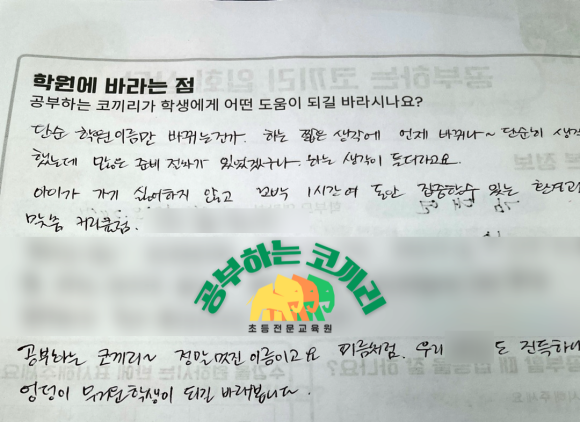 학원에 바라는 점
공부하는 코끼리가 학생에게 어떤 도움이 되길 바라시나요?
단순 학원이름만 바뀌는건가. 하는 짧은 생각에 언제 바뀌나~ 단순히 생각
했는데 많은 준비 절차가 있었겠구나. 하는 생각이 들더라고요.
아이가 가기 싫어하지 않고 꼬박 1시간여 동안 집중할수 있는 환경과
맞춤 커리큘럼.
공부하는 코끼리
초등전문교육원
공부하는 코끼리~ 정말 멋진 이름이고요 이름처럼. 우리 도 진득하니
엉덩이 무거운 학생이 되길 바래봅니다.